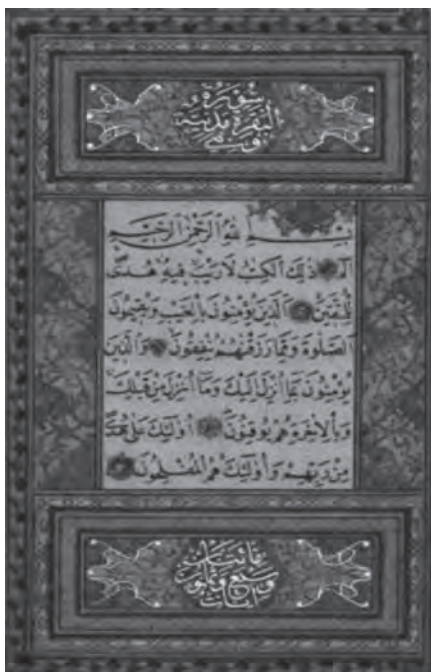 سُورَةُ
البَقَرَةِ مَدَنِيَّةٌ
وَهِيَ
بِسْمِ اللهِ الرَّحْمٰنِ الرَّحِيمِ
الٓمٓ ذٰلِكَ الْكِتٰبُ لَا رَيْبَ فِيهِ هُدًى
لِلْمُتَّقِينَ الَّذِينَ يُؤْمِنُونَ بِالْغَيْبِ وَيُقِيمُونَ
الصَّلٰوةَ وَمِمَّا رَزَقْنٰهُمْ يُنْفِقُونَ وَالَّذِينَ
يُؤْمِنُونَ بِمَا أُنْزِلَ إِلَيْكَ وَمَا أُنْزِلَ مِنْ قَبْلِكَ
وَبِالْاٰخِرَةِ هُمْ يُوقِنُونَ أُولٰئِكَ عَلٰى هُدًى
مِنْ رَبِّهِمْ وَأُولٰئِكَ هُمُ الْمُفْلِحُونَ
مائتان
وسبع وثمانون
آيات